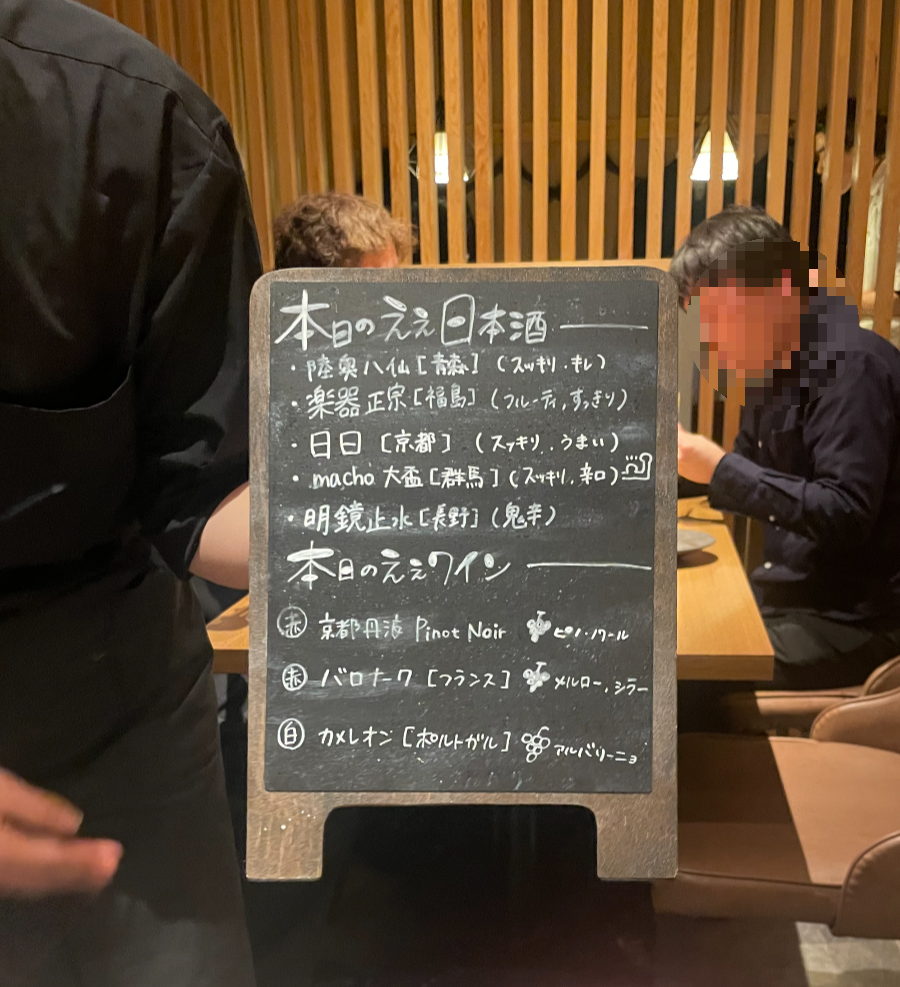 本日のええ日本酒
・陸奥八仙[青森](スッキリ・キレ)
・楽器正宗[福島](フルーティ,すっきり)
・日日[京都](スッキリ,うまい)
・macho 大盃[群馬](スッキリ,辛口)
・明鏡止水[長野](鬼辛)
本日のええワイン
赤 京都丹波 Pinot Noir ピノ・ノワール
赤 バロナーク[フランス] メルロー,シラー
白 カメレオン[ポルトガル] アルバリーニョ